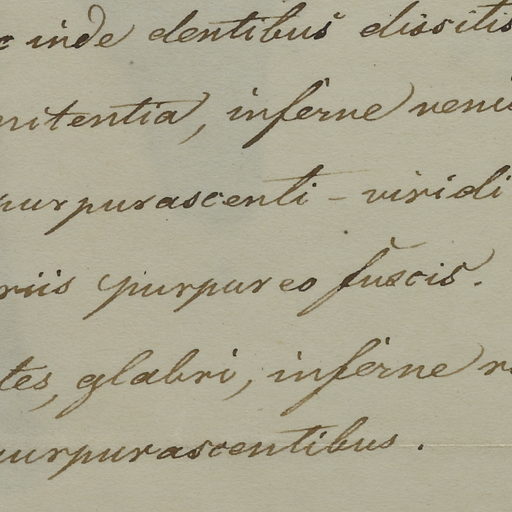 inde dentibus dissitis
nitentia, inferne veni
purpurascenti - viridi
riis purpureo fuscis.
tes, glabri, inferne
purpurascentibus.